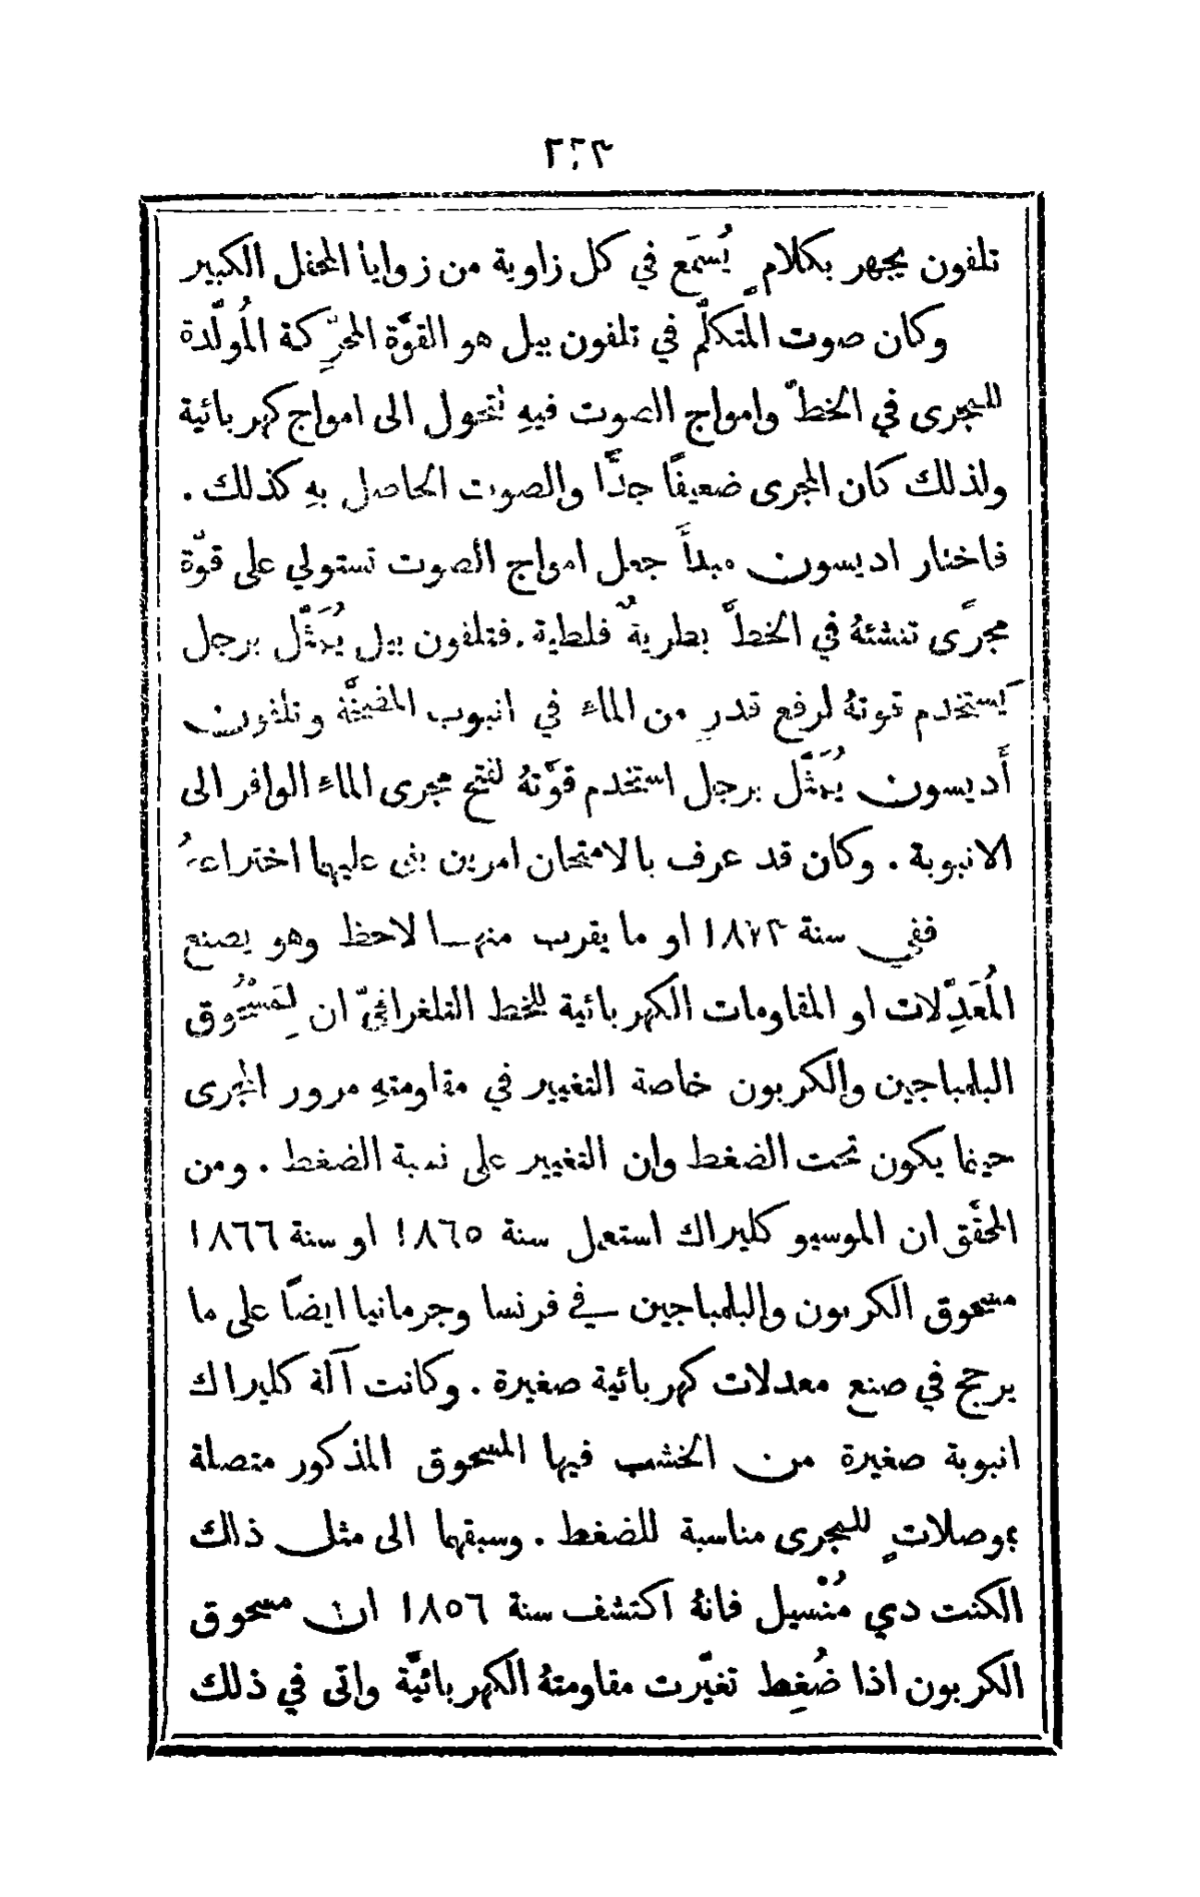 تلفون يجهر بكلامٍ يُسمَع في كل زاوية من زوايا المحفل الكبير
وكان صوت المتكلّم في تلفون بيل هو القوَّة المحرِّكة المُولّدة
للمجرى في الخطّ وامواج الصوت فيهِ تتحول الى امواج كهربائية
ولذلك كان المجرى ضعيفًا جدًّا والصوت الحاصل بهِ كذلك .
فاختار اديسون مبدأَ جعل امواج الصوت تستولي على قوّة
مجرًى تنشئهُ في الخطّ بطريةٌ فلطية . فتلفون بيل يُمَثَّل برجل
يَستخدم قوتهُ لرفع قدرٍ من الماء في انبوب المضخَّة وتلفون
أَديسون يُمَثَّل برجل استخدم قوَّتهُ لفتح مجرى الماء الوافر الى
الانبوبة . وكان قد عرف بالامتحان امرين بنى عليهما اختراعهُ
ففي سنة ١٨٧٣ او ما يقرب منها لاحظ وهو يصنع
المُعَدِّلات او المقاومات الكهربائية للخط التلغرافيّ ان لِمَسْحُوق
البلمباجين والكربون خاصة التغيير في مقاومتهِ مرور المجرى
حينما يكون تحت الضغط وان التغيير على نسبة الضغط . ومن
المحقَّق ان الموسيو كليراك استعمل سنة ١٨٦٥ او سنة ١٨٦٦
مسحوق الكربون والبلمباجين في فرنسا وجرمانيا ايضًا على ما
يرجح في صنع معدلات كهربائية صغيرة . وكانت آلة كليراك
انبوبة صغيرة من الخشب فيها المسحوق المذكور متصلة
بموصلاتٍ للمجرى مناسبة للضغط . وسبقهما الى مثل ذلك
الكنت دي مُنْسيل فانهُ اكتشف سنة ١٨٥٦ ان مسحوق
الكربون اذا ضُغِط تغيَّرت مقاومتهُ الكهربائيَّة واتى في ذلك